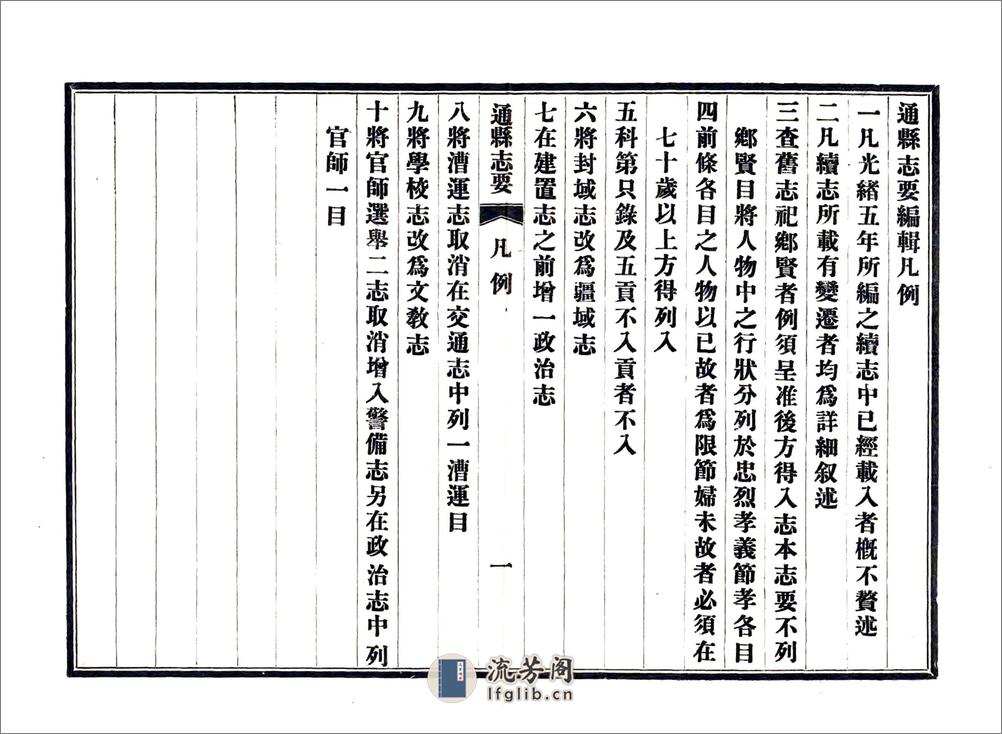 通縣志要編輯凡例
一凡光緒五年所編之續志中已經載入者概不贅述
二凡續志所載有變遷者均爲詳細叙述
三查舊志祀鄉賢者例須呈准後方得入志本志要不列
鄉賢目將人物中之行狀分列於忠烈孝義節孝各目
四前條各目之人物以已故者爲限節婦未故者必須在
七十歲以上方得列入
五科第只錄及五貢不入貢者不入
六將封域志改爲疆域志
七在建置志之前增一政治志
通縣志要 凡例 一
八將漕運志取消在交通志中列一漕運目
九將學校志改爲文教志
十將官師選舉二志取消增入警備志另在政治志中列
官師一目
流芳阁
lfglib.cn